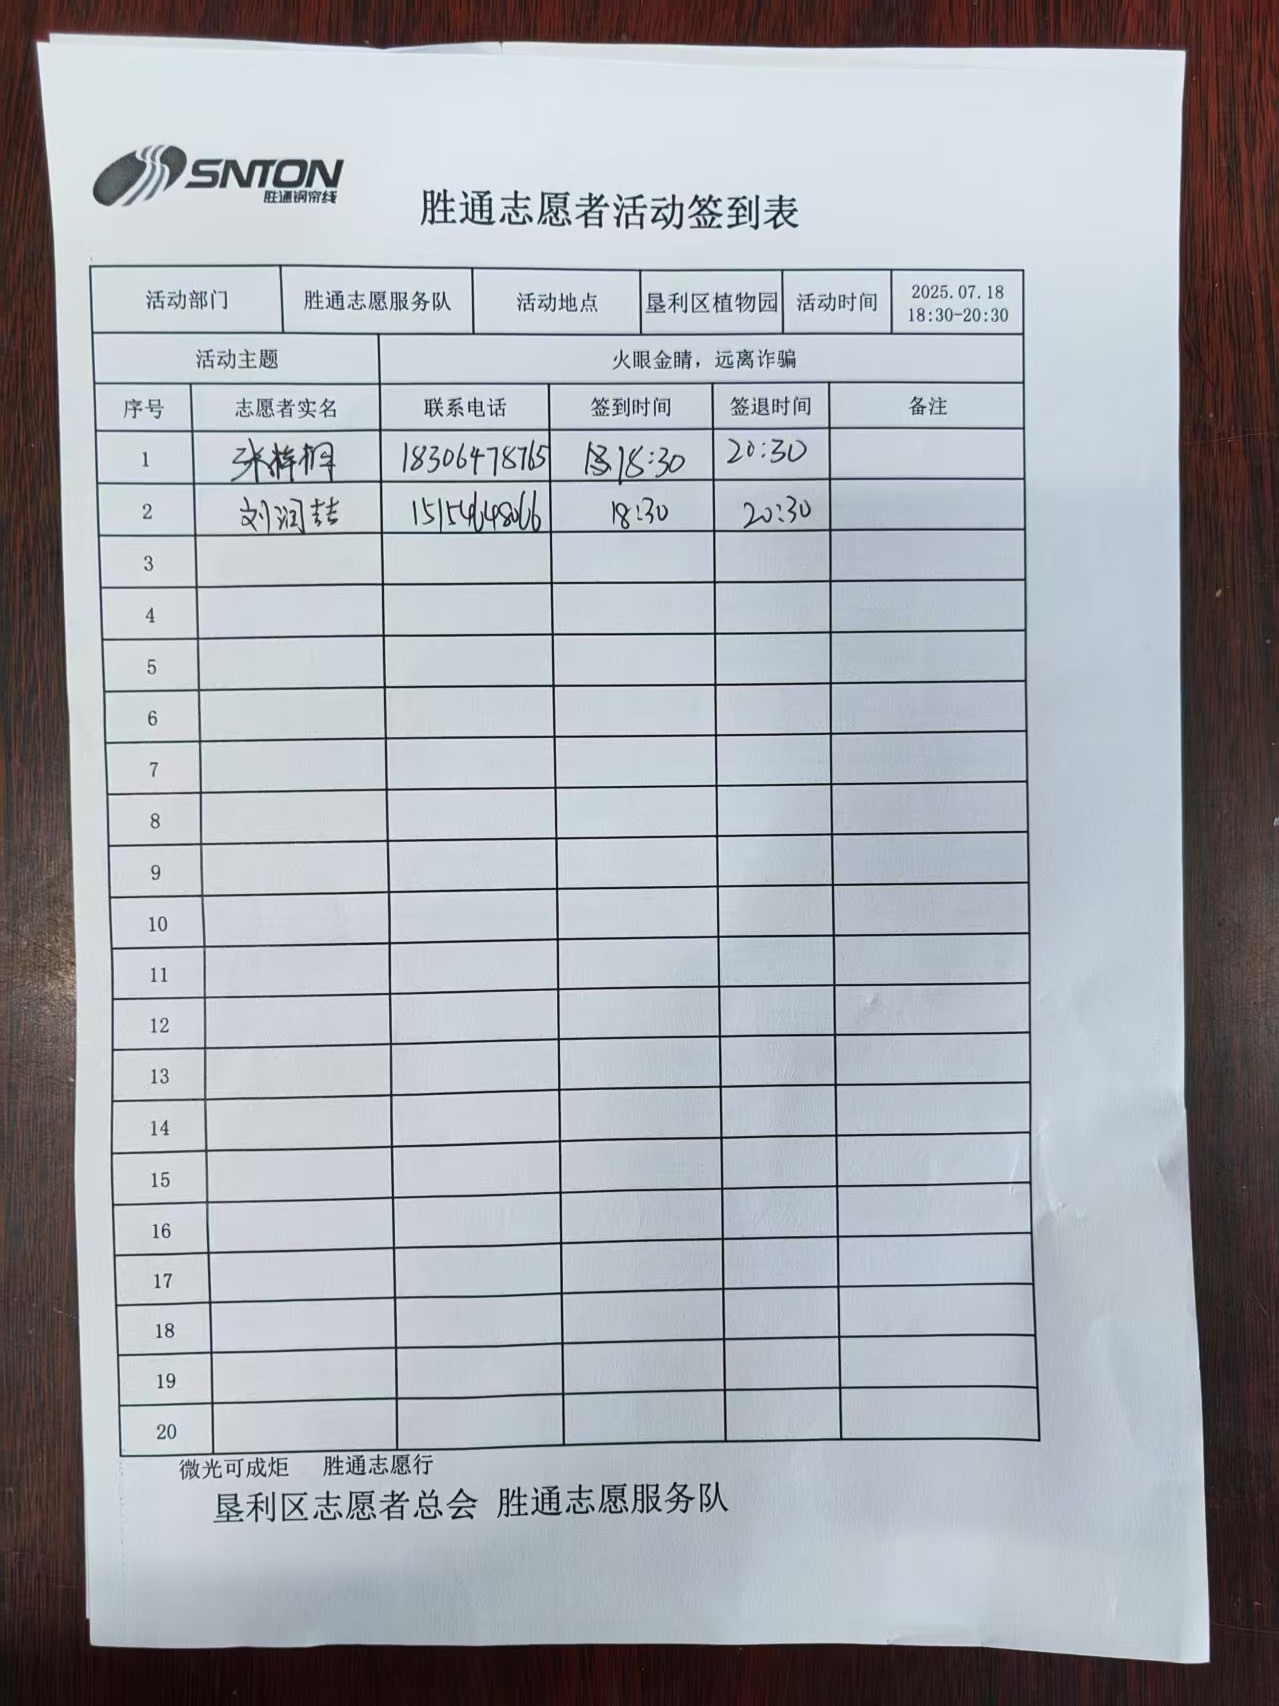 SNTON
胜通钢帘线
胜通志愿者活动签到表
活动部门 胜通志愿服务队 活动地点 垦利区植物园 活动时间 2025.07.18 18:30-20:30
活动主题 火眼金睛，远离诈骗
序号 志愿者实名 联系电话 签到时间 签退时间 备注
1 张梓桐 18306478765 18:30 20:30
2 刘润喆 15154648066 18:30 20:30
3
4
5
6
7
8
9
10
11
12
13
14
15
16
17
18
19
20
微光可成炬 胜通志愿行
垦利区志愿者总会 胜通志愿服务队